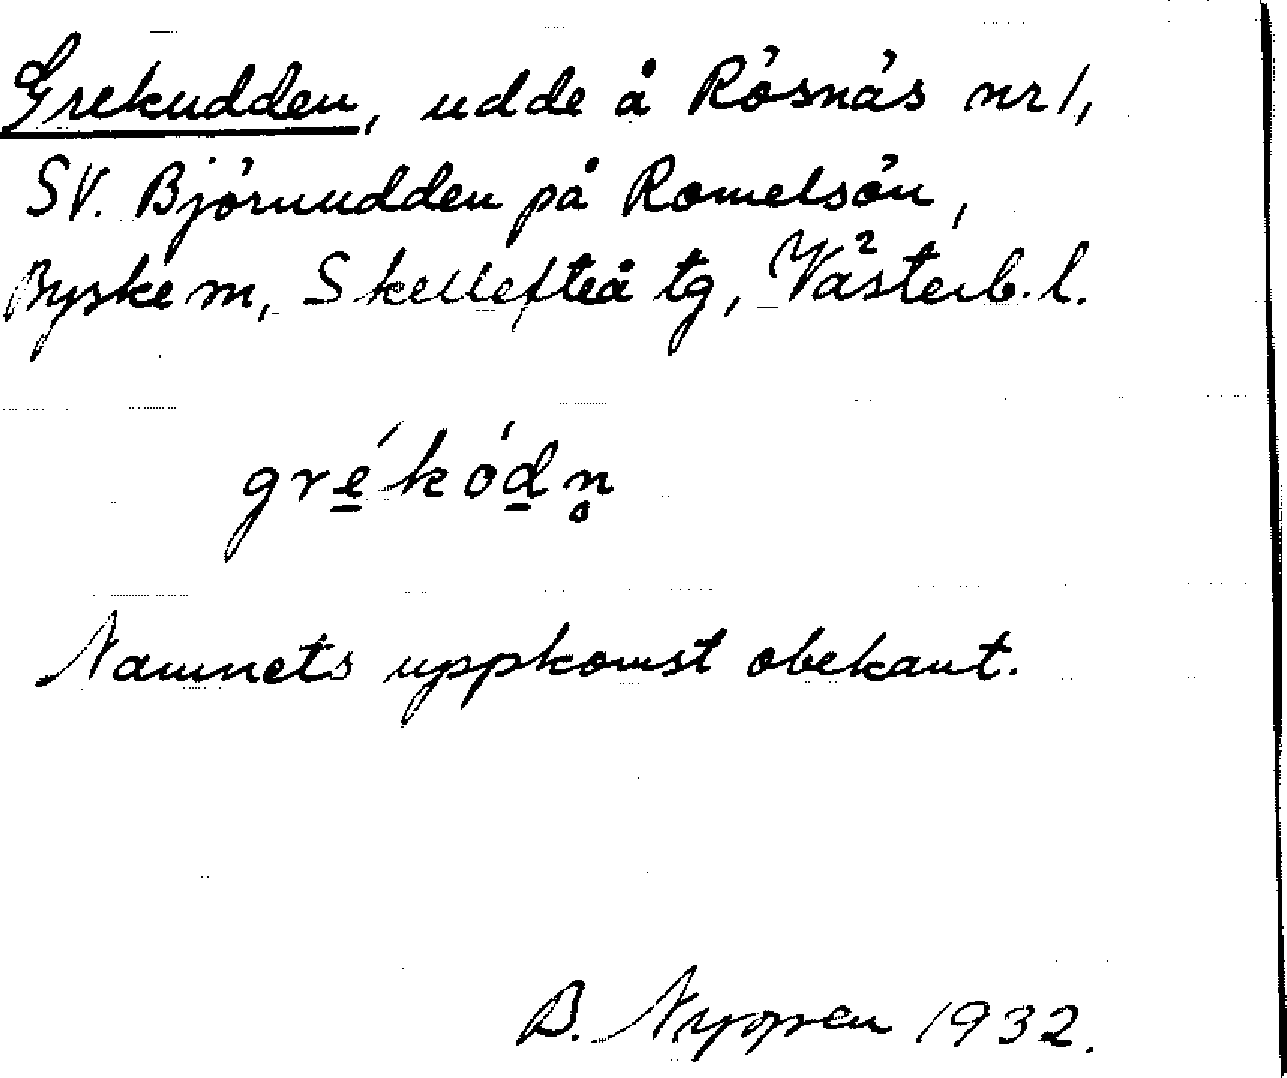 Grekudden, udde å Rösnäs nr 1,
SV. Björnudden på Romelsön,
Byske m, Skellefteå tg, Västerb. l.
gre̲´kód̲n̥
Namnets uppkomst obekant.
B. 1932.